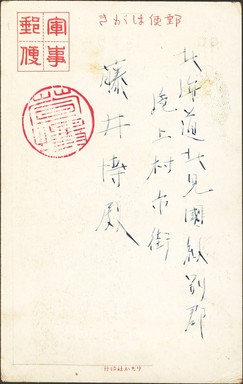 郵便はがき
軍事
郵便
北海道北見國紋別郡
滝上村市街
藤井博殿